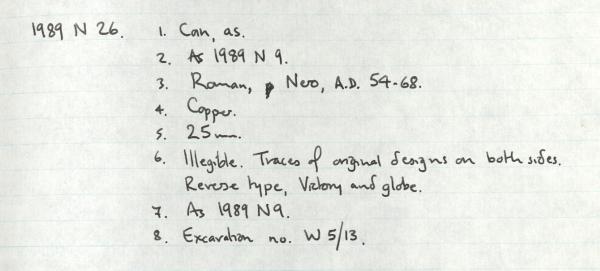 1989 N 26. 1. Coin, as.
2. As 1989 N 9.
3. Roman, Nero, A.D. 54-68.
4. Copper.
5. 25mm.
6. Illegible. Traces of original designs on both sides.
Reverse type, Victory and globe.
7. As 1989 N9.
8. Excavation no. W 5/13.